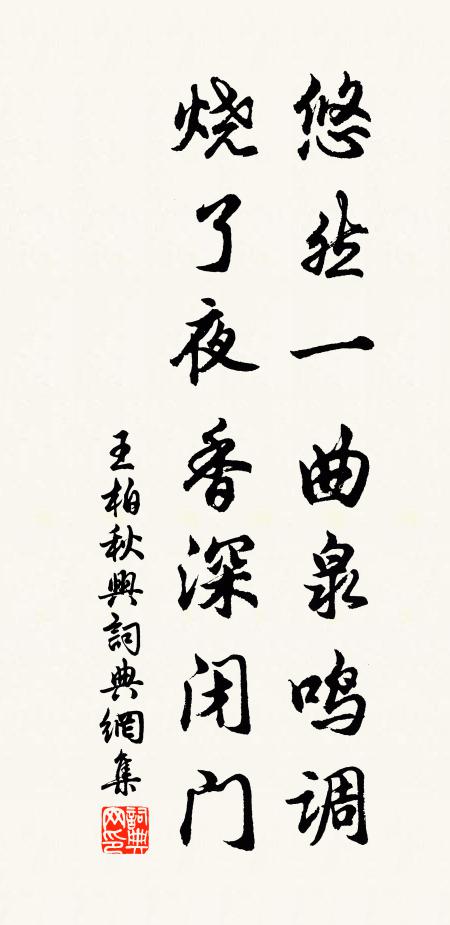 悠然一曲泉鸣调
烧了夜香深闭门
王柏秋興詞典網集
詞典网印